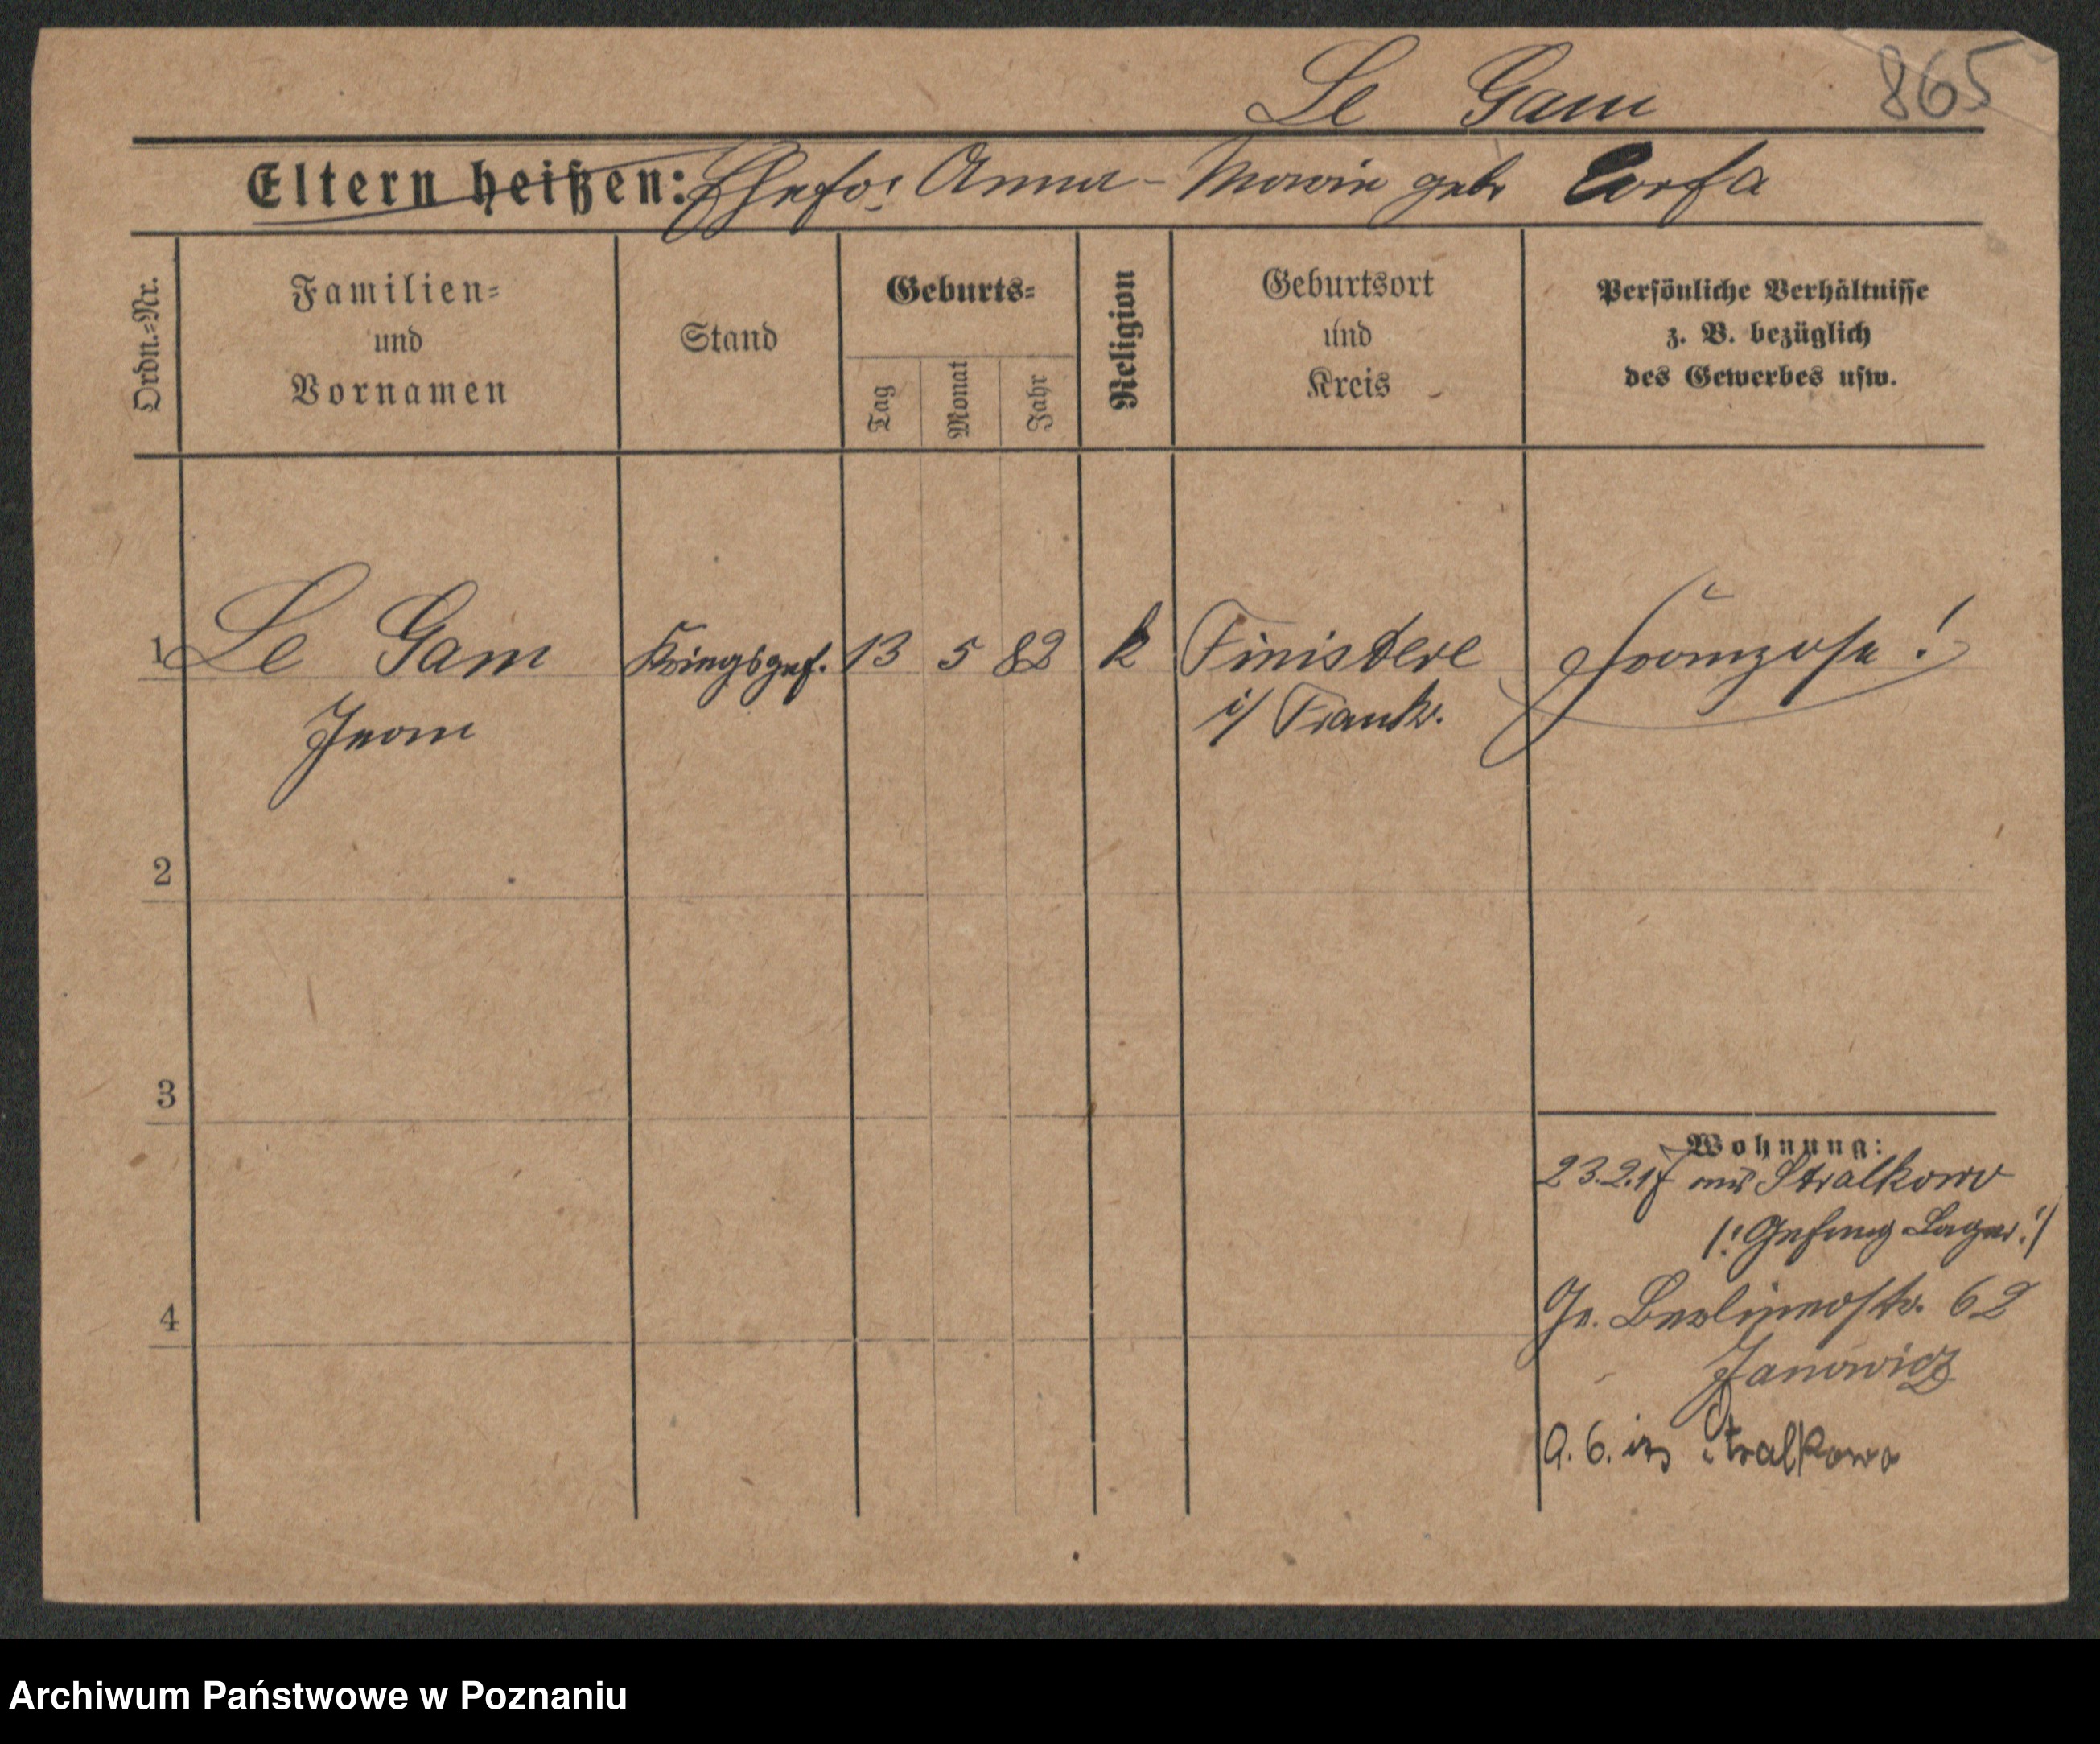 Le Gam
865
Eltern heißen: Ehefr: Anna-Marie geb Corfa
Ordn.-Nr.
Familien-
und
Vornamen
Stand
Geburts-
Tag
Monat
Jahr
Religion
Geburtsort
und
Kreis
Persönliche Verhältnisse
z. B. bezüglich
des Gewerbes usw.
1 Le Gam Kriegsgef. 13 5 82 k Finistere Franzose!
Jean i/ Frankr.
2
3
4
Wohnung:
23.2.17 aus Stralkowo
/: Gefang Lager :/
Gr. Berlinerstr. 62
Janowicz
9. 6. Stralkowo
Archiwum Państwowe w Poznaniu